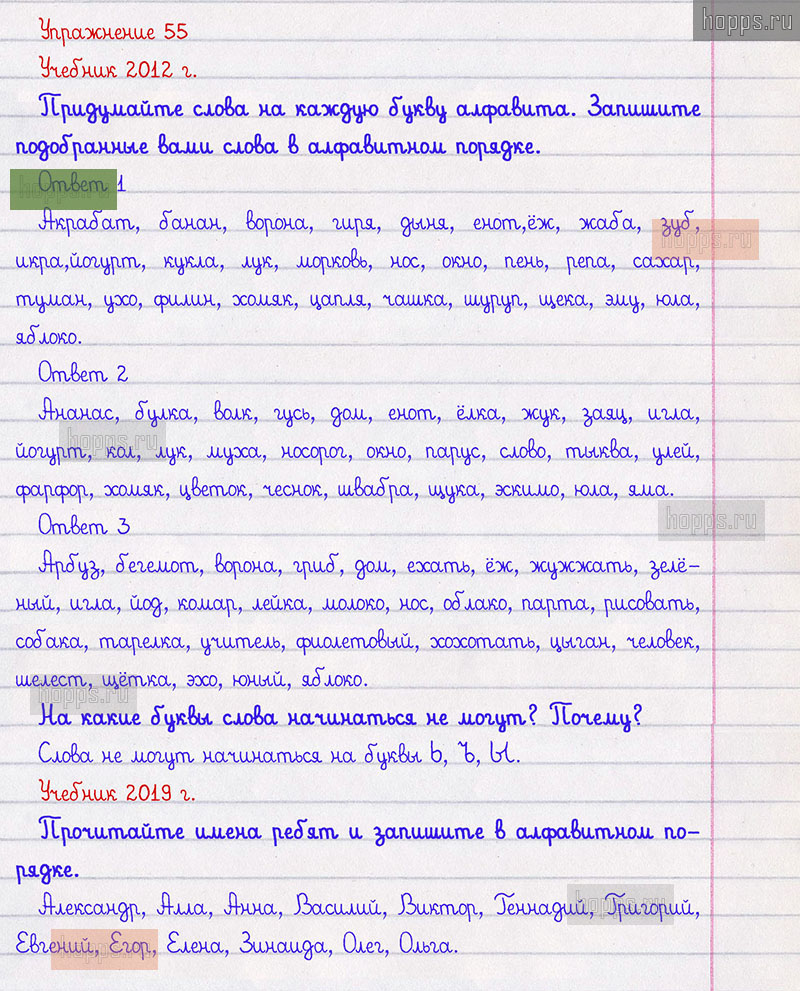 hopps.ru
Упражнение 55
Учебник 2012 г.
Придумайте слова на каждую букву алфавита. Запишите
подобранные вами слова в алфавитном порядке.
Ответ 1
hopps.ru
Акрабат, банан, ворона, гиря, дыня, енот,ёж, жаба, зуб,
hopps.ru
икра,йогурт, кукла, лук, морковь, нос, окно, пень, репа, сахар,
туман, ухо, филин, хомяк, цапля, чашка, шуруп, щека, эму, юла,
яблоко.
Ответ 2
Ананас, булка, волк, гусь, дом, енот, ёлка, жук, заяц, игла,
hopps.ru
йогурт, кол, лук, муха, носорог, окно, парус, слово, тыква, улей,
фарфор, хомяк, цветок, чеснок, швабра, щука, эскимо, юла, яма.
hopps.ru
Ответ 3
Арбуз, бегемот, ворона, гриб, дом, ехать, ёж, жужжать, зелё-
ный, игла, йод, комар, лейка, молоко, нос, облако, парта, рисовать,
собака, тарелка, учитель, фиолетовый, хохотать, цыган, человек,
шелест, щётка, эхо, юный, яблоко.
hopps.ru
На какие буквы слова начинаться не могут? Почему?
Слова не могут начинаться на буквы Ь, Ъ, Ы.
Учебник 2019 г.
Прочитайте имена ребят и запишите в алфавитном по-
рядке.
Александр, Алла, Анна, Василий, Виктор, Геннадий, Григорий,
hopps.ru
Евгений, Егор, Елена, Зинаида, Олег, Ольга.
hopps.ru